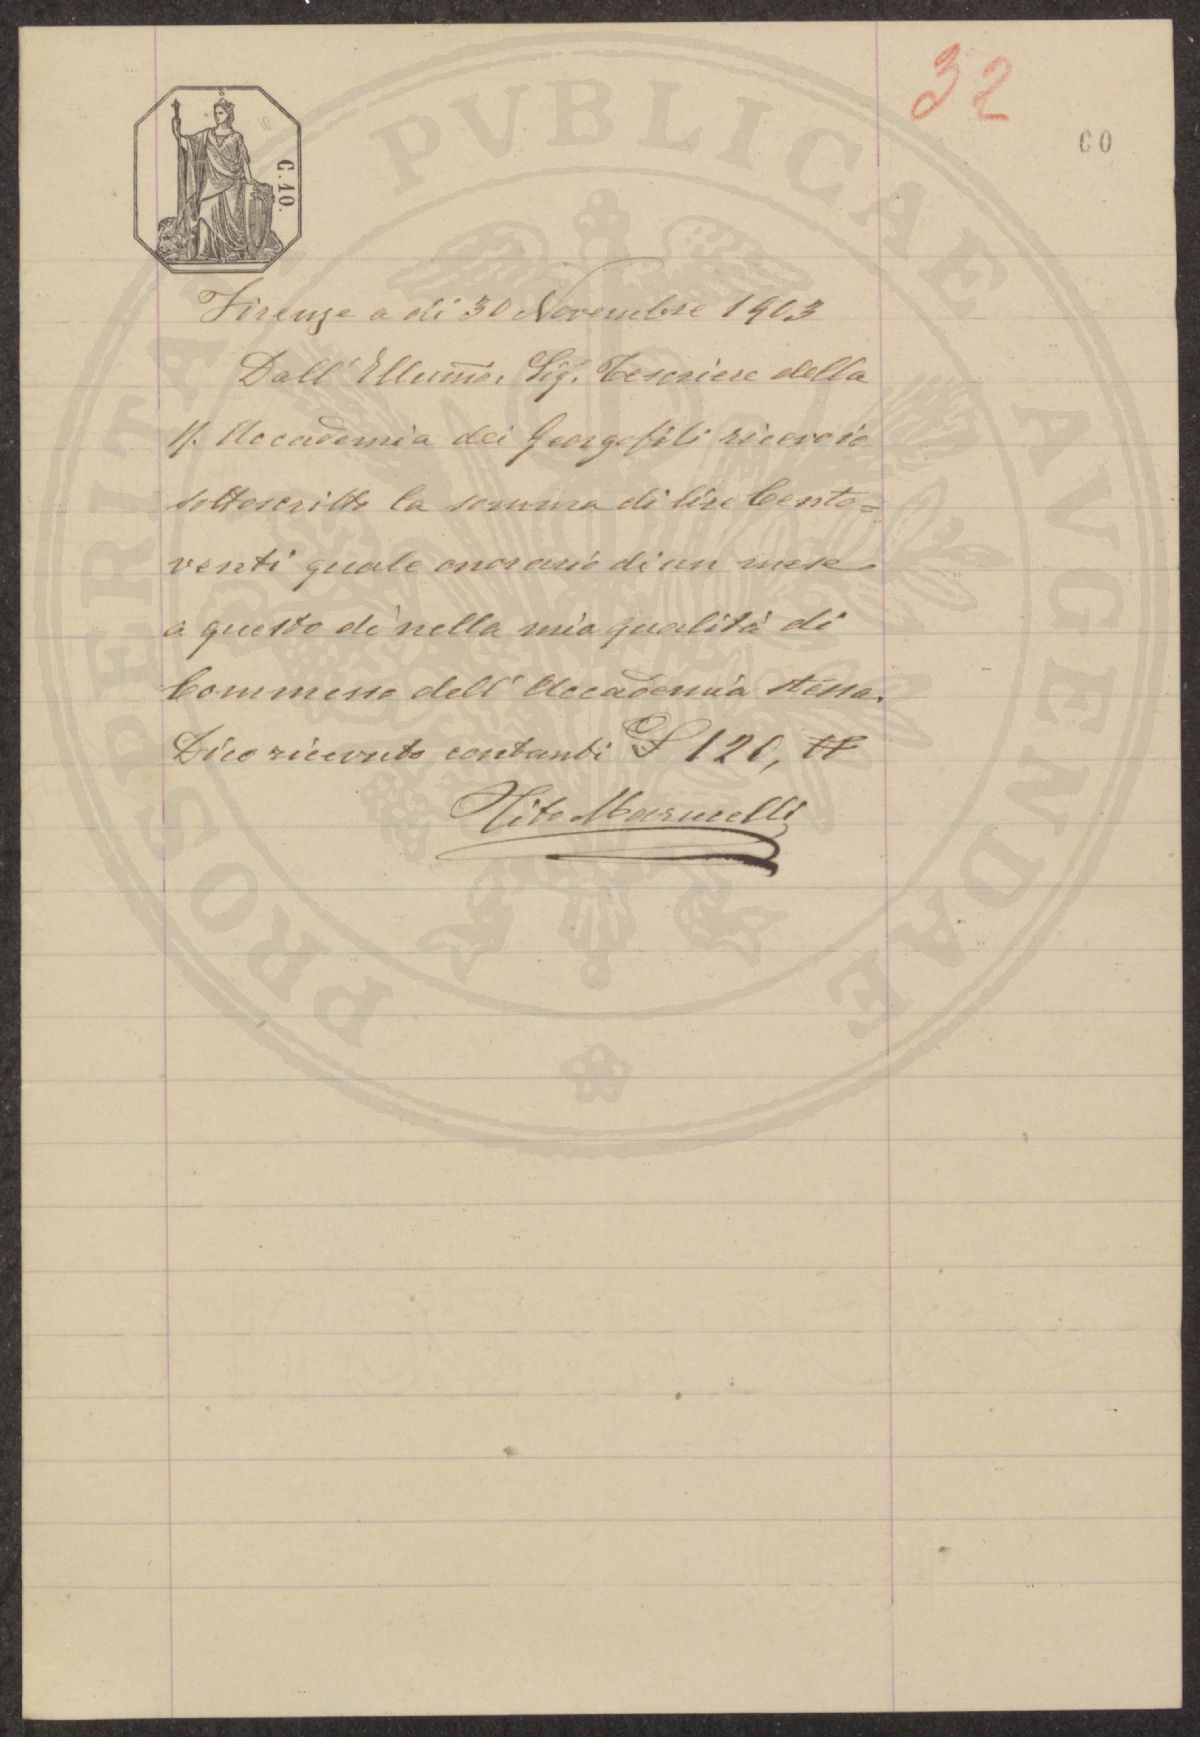 32
60
C. 10.
PROSPERITATI PVBLICAE AVGENDAE
Firenze a dì 30 Novembre 1903
Dall' Illumo. Sig. Tesoriere della
R. Accademia dei Georgofili ricevo io
sottoscritto la somma di lire Cento=
venti quale onorario di un mese
a questo dì nella mia qualità di
Commesso dell' Accademia stessa.
Dico ricevuto contanti £ 120,
Tito Marucelli